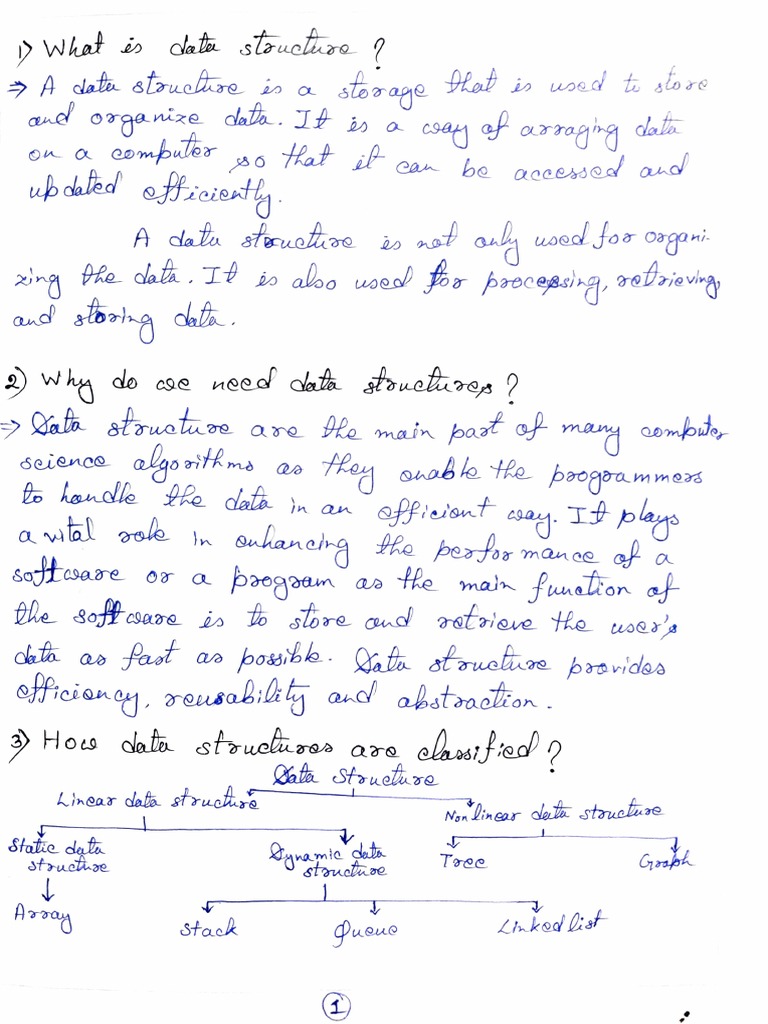 1) What is data structure?
⇒ A data structure is a storage that is used to store
and organize data. It is a way of arraging data
on a computer so that it can be accessed and
updated efficiently.
A data structure is not only used for organi-
zing the data. It is also used for processing, retrieving,
and storing data.
2) Why do we need data structures?
⇒ Data structure are the main part of many computer
science algorithms as they enable the programmers
to handle the data in an efficient way. It plays
a vital role in enhancing the performance of a
software or a program as the main function of
the software is to store and retrieve the user's
data as fast as possible. Data structure provides
efficiency, reusability and abstraction.
3) How data structures are classified?
Data structure
Linear data structure
Non linear data structure
Static data structure
Dynamic data structure
Tree
Graph
Array
Stack
Queue
Linked list
1